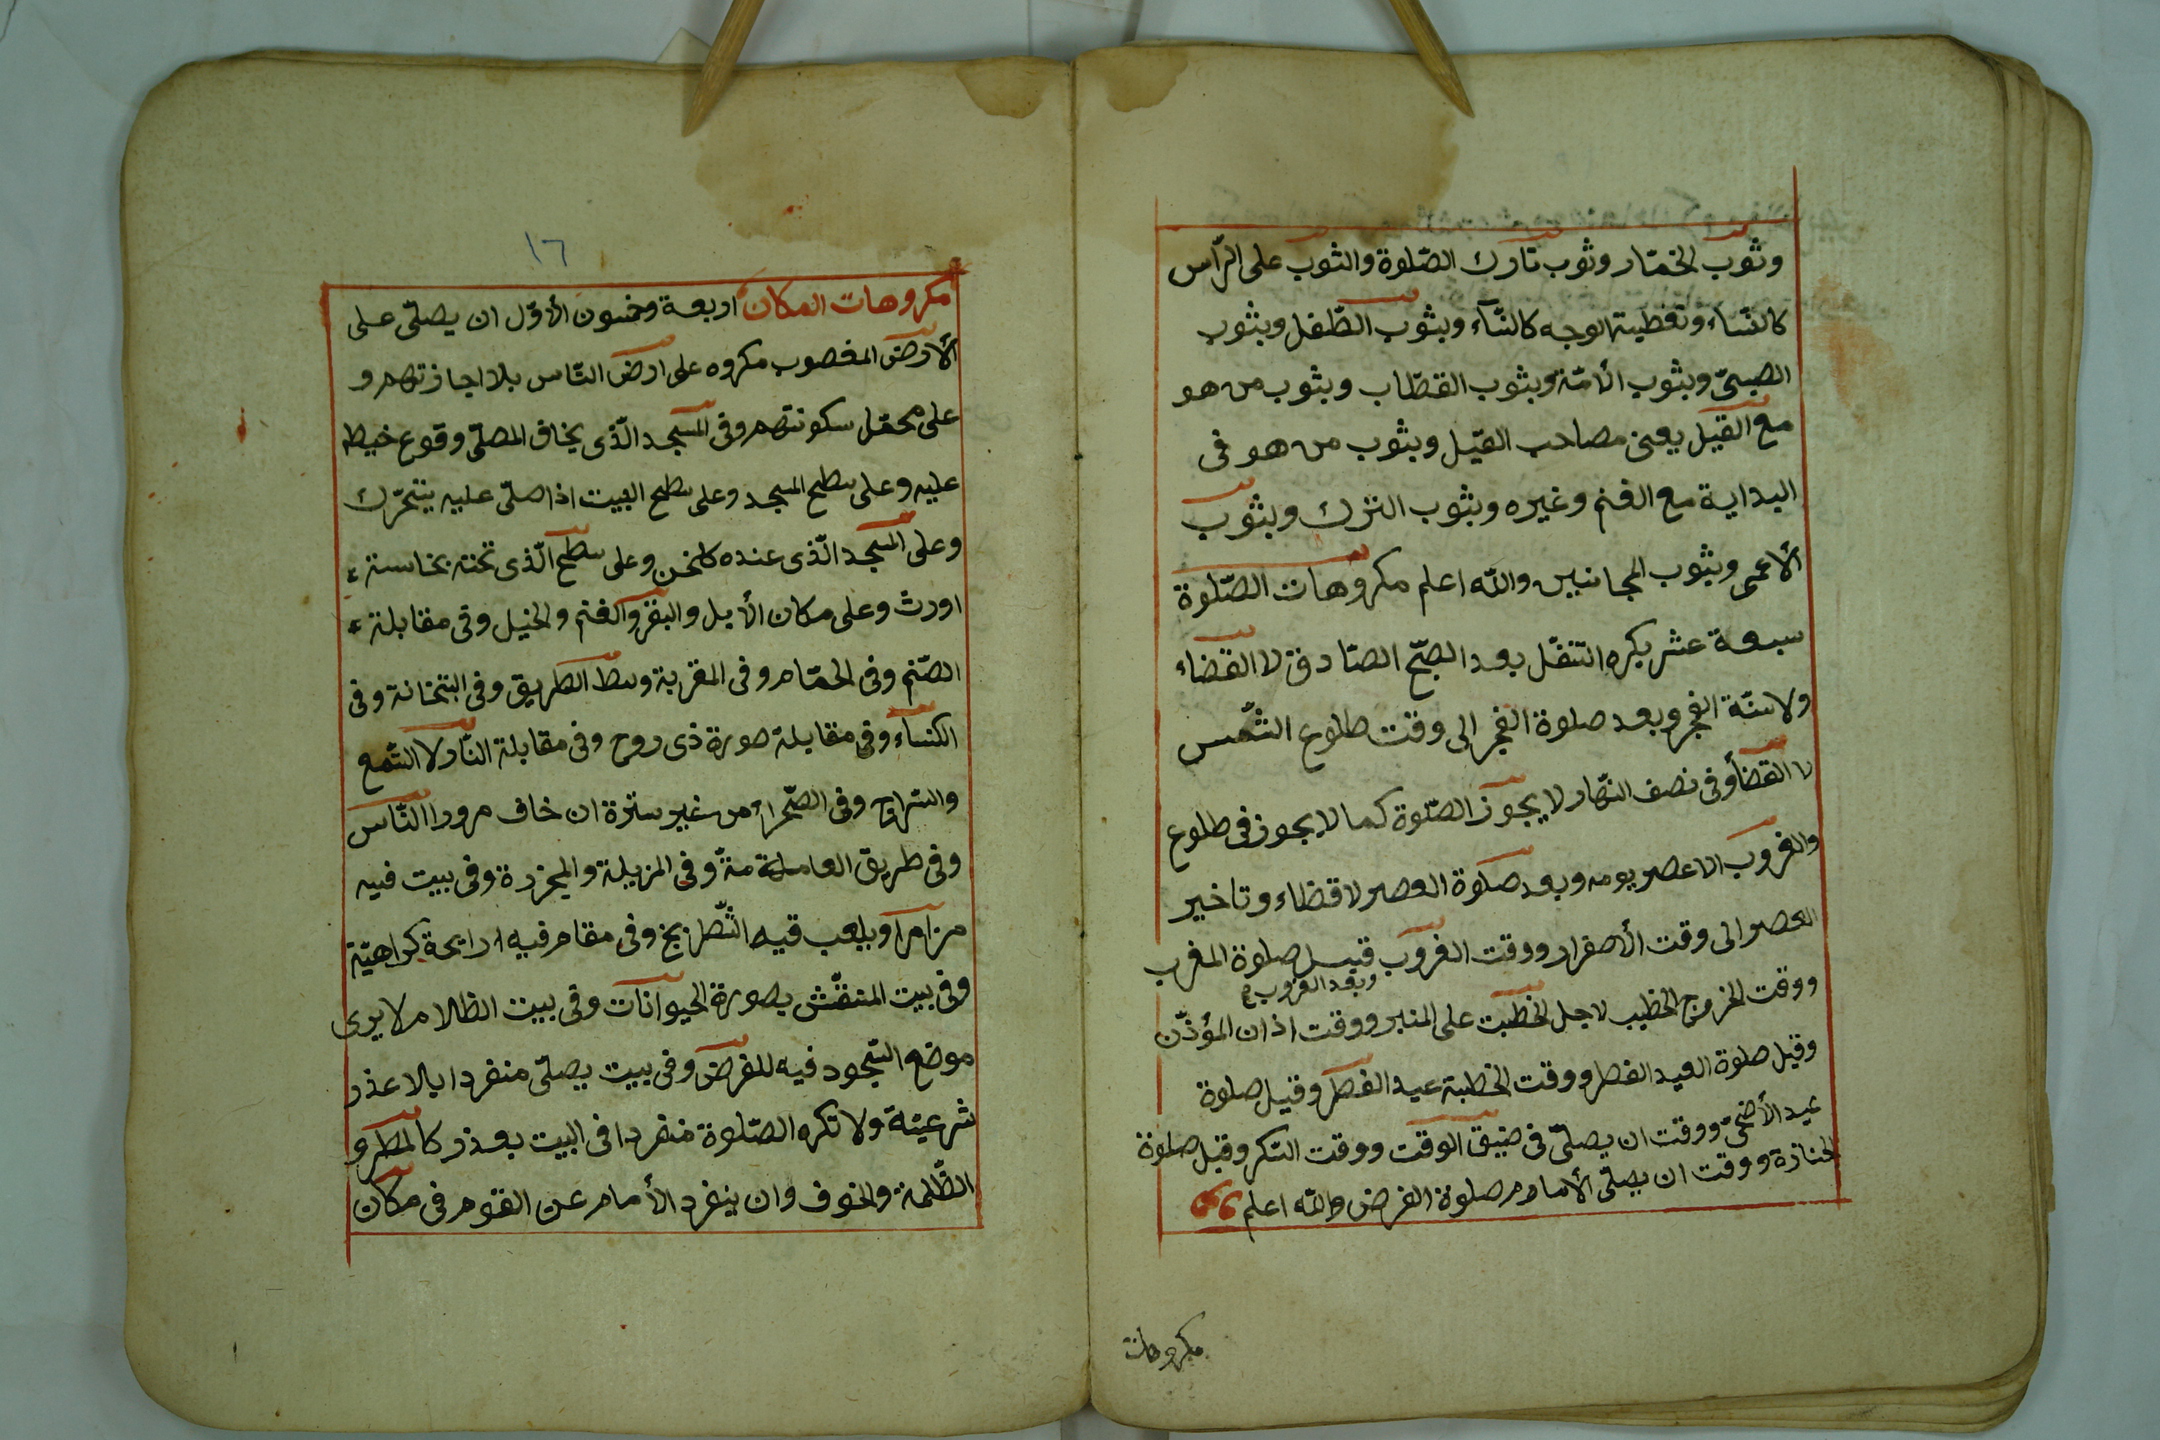 وثوب الخمّار وثوب تارك الصّلوة والثوب على الرّأس
كالنّساء وتغطية الوجه كالنّسآء وبثوب الطّفل وبثوب
الصبىّ وبثوب الأمّة وبثوب القصّاب وبثوب من هو
مع القيل يعنى مصاحب القيل وبثوب من هو فى
البداية مع الغنم وغيره وبثوب الترك وبثوب
الأعمى وبثوب المجانين والله اعلم مكروهات الصّلوة
سبعة عشر يكره التنفّل بعد الصّبح الصّادق لا القضاء
ولا سنّة الفجر وبعد صلوة الفجر الى وقت طلوع الشّمس
لا القضأ وفى نصف النّهار لا يجوز الصّلوة كما لا يجوز فى طلوع
والغروب الا عصر يومه وبعد صلوة العصر لا قضاء وتاخير
العصر الى وقت الأصفرار ووقت الغروب قبل صلوة المغرب
وبعد الغروب
ووقت الخروج الخطيب لاجل الخطبت على المنبر ووقت اذان المؤذّن
وقبل صلوة العيد الفطر ووقت الخطبة عيد الفطر وقبل صلوة
عيد الأضحىّ ووقت ان يصلّى فى ضيق الوقت ووقت السّكر وقبل صلوة
الجنازة ووقت ان يصلّى الأمام صلوة الفرض والله اعلم
مكروهات
١٦
مكروهات المكان اربعة وخسون الأوّل ان يصلّى على
الأرض المغصوب مكروه على ارض النّاس بلا اجازتهم و
على محفل سكونتهم وفى المسجد الّذى يخاف المصلّى وقوع خيطه
عليه وعلى سطح المسجد وعلى سطح البيت اذا صلّى عليه يتحرّك
وعلى المسجد الّذى عنده كلخن وعلى سطح الّذى تحته نجاسة
اورث وعلى مكان الأبل والبقر والغنم والخيل وفى مقابلة
الصّنم وفى الحمّام وفى المقربة وسط الطريق وفى البتخانة وفى
الكنساء وفى مقابلة صورة ذى روح وفى مقابلة النّار لا الشّمع
والسّراج وفى الصّحراء من غير سترة ان خاف مرورا النّاس
وفى طريق العاملة مة وفى المزبلة والمجزرة وفى بيت فيه
مزامرا ويلعب فيه الشّطرنج وفى مقام فيه ا رايحة كراهيّة
وفى بيت المنقّش بصورة الحيوانات وفى بيت الظلام لا يرى
موضع السّجود فيه للفرض وفى بيت يصلّى منفردا بالا عذر
شرعيّة ولا تكره الصّلوة منفردا فى البيت بعذر كالمطر و
الظّلمة والخوف وان ينفرد الأمام عن القوم فى مكان